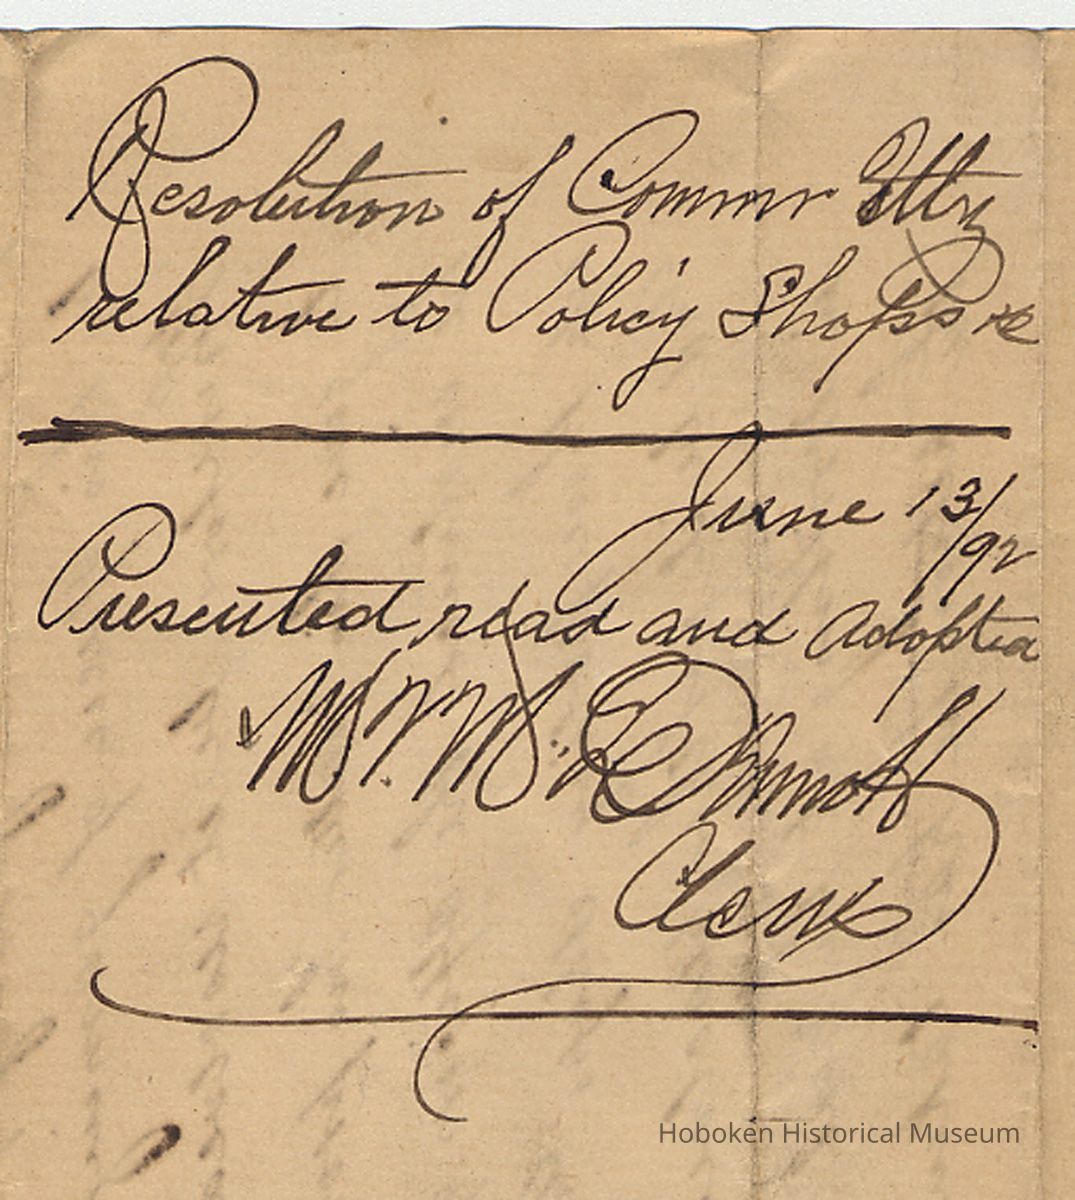 Resolution of Commr
relative to Policy Shops &c
June 13/92
Presented read and adopted
McDermott
Clerk
Hoboken Historical Museum